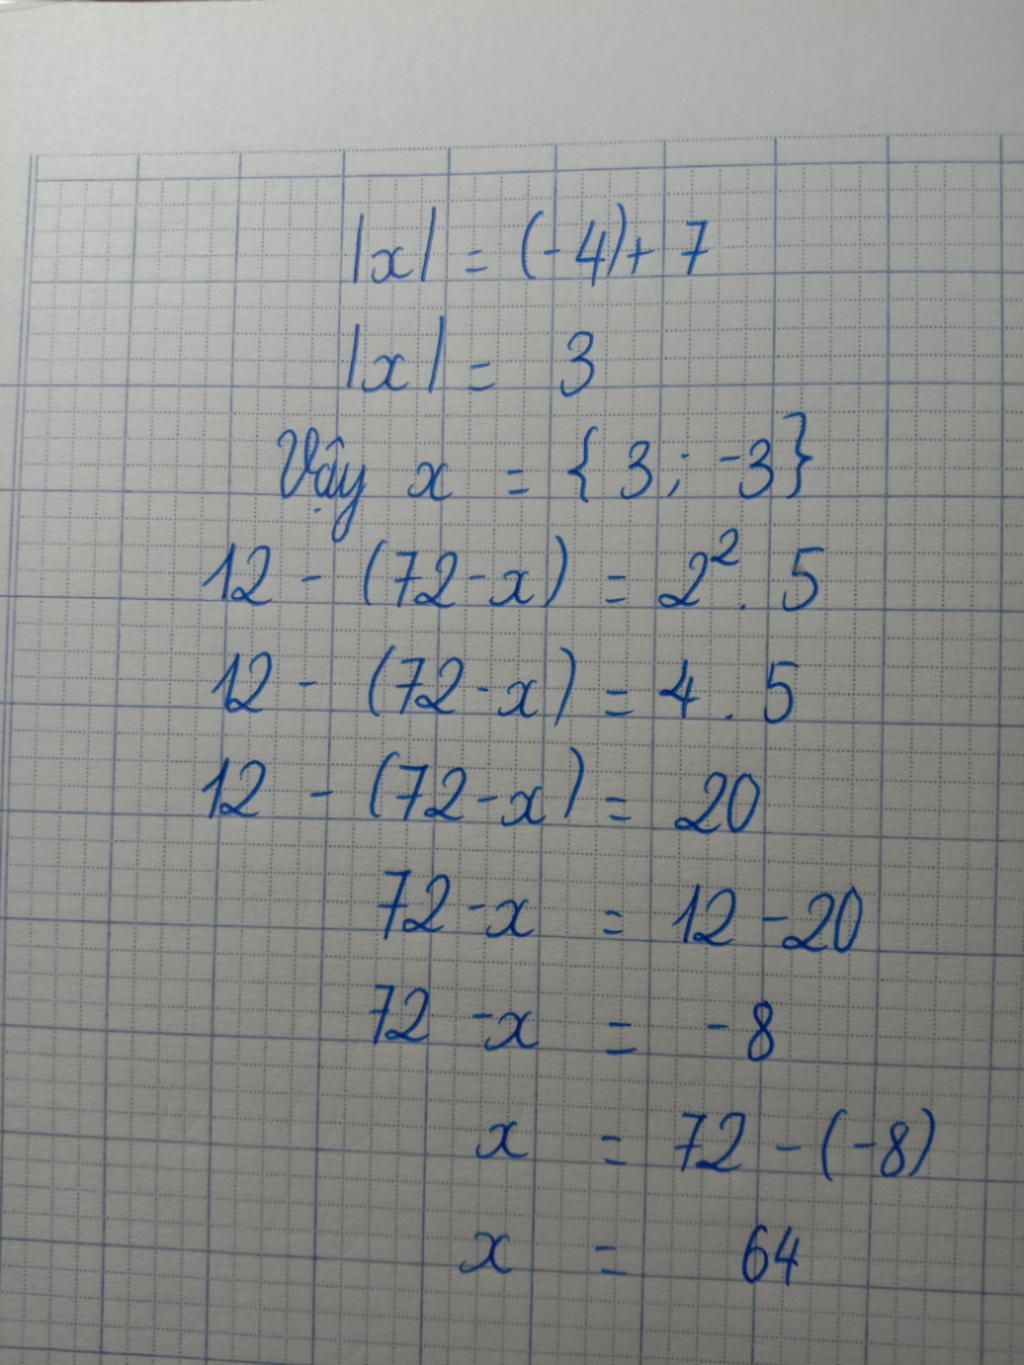 |x| = (-4)+ 7
|x| = 3
Vậy x = {3; -3}
12 - (72-x) = 2². 5
12 - (72-x) = 4 . 5
12 - (72-x) = 20
72-x = 12 - 20
72 -x = -8
x = 72 - (-8)
x = 64